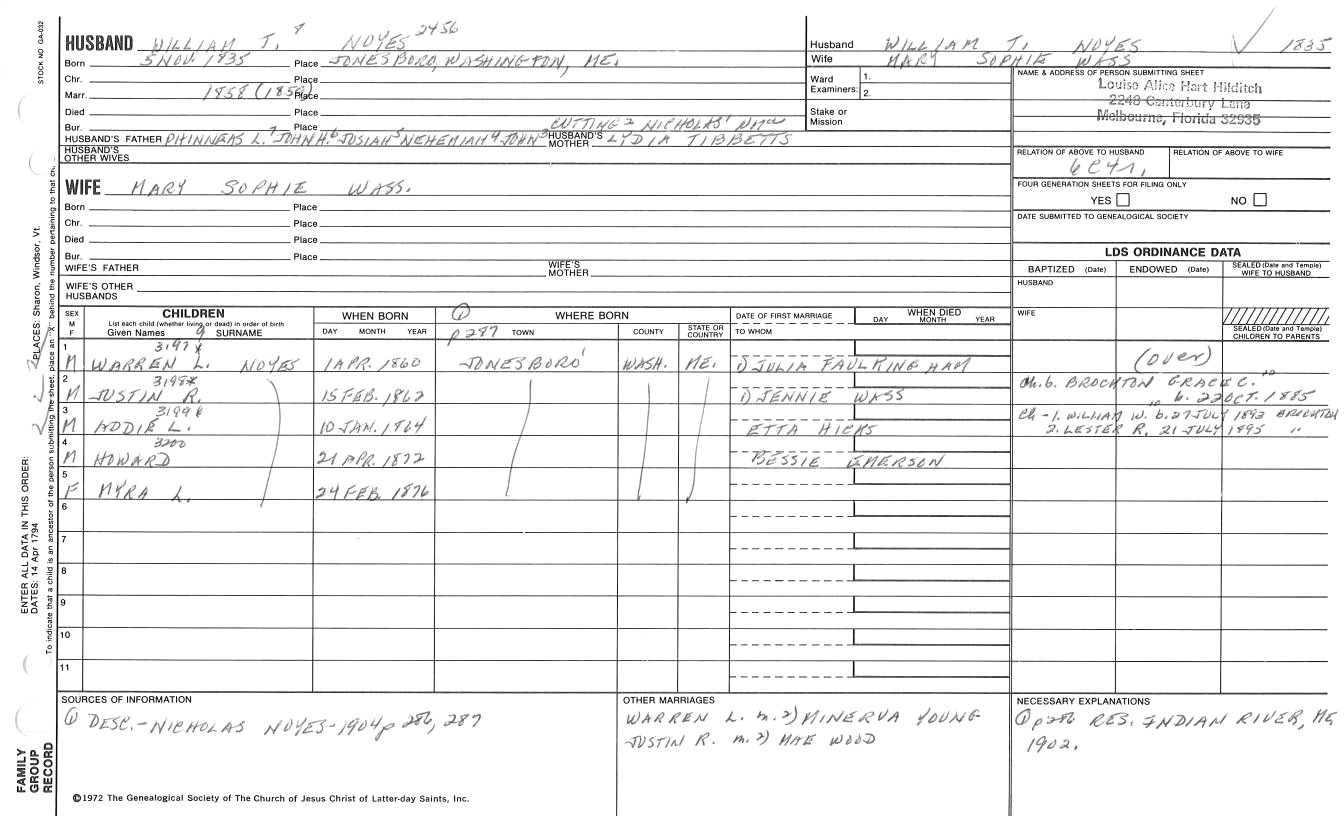 STOCK NO GA-032
HUSBAND WILLIAM T. 8 NOYES 2456
Born 5 NOV. 1835 Place JONESBORO, WASHINGTON, ME.
Chr. Place
Marr. 1858 (1859) Place
Died Place
Bur. Place CUTTING 2 NICHOLAS'
HUSBAND'S FATHER PHINNEAS L. 7 JOHN H. 6 JOSIAH 5 NEHEMIAH 4 JOHN 3 HUSBAND'S MOTHER LYDIA TIBBETTS
HUSBAND'S OTHER WIVES
Husband WILLIAM T. NOYES 1835
Wife MARY SOPHIE WASS
Ward Examiners: 1.
2.
Stake or Mission
NAME & ADDRESS OF PERSON SUBMITTING SHEET
Louise Alice Hart Hilditch
2240 Canterbury Lane
Melbourne, Florida 32935
RELATION OF ABOVE TO HUSBAND RELATION OF ABOVE TO WIFE
6C4r.
FOUR GENERATION SHEETS FOR FILING ONLY
YES NO
DATE SUBMITTED TO GENEALOGICAL SOCIETY
WIFE MARY SOPHIE WASS.
Born Place
Chr. Place
Died Place
Bur. Place
WIFE'S FATHER WIFE'S MOTHER
WIFE'S OTHER HUSBANDS
LDS ORDINANCE DATA
BAPTIZED (Date) ENDOWED (Date) SEALED (Date and Temple) WIFE TO HUSBAND
HUSBAND
WIFE
SEALED (Date and Temple) CHILDREN TO PARENTS
SEX M F CHILDREN WHEN BORN WHERE BORN DATE OF FIRST MARRIAGE WHEN DIED
List each child (whether living or dead) in order of birth
Given Names 9 SURNAME DAY MONTH YEAR ① p287 TOWN COUNTY STATE OR COUNTRY TO WHOM DAY MONTH YEAR
1 3197 x
M WARREN L. NOYES 1 APR. 1860 JONESBORO' WASH. ME. 1) JULIA FAULKINGHAM
(over)
2 3198 x
M JUSTIN R. 15 FEB. 1862 1) JENNIE WASS
ch. 6. BROCKTON GRACE C.
b. 22 OCT. 1885
3 3199 x
M ADDIE L. 10 JAN. 1864 ETTA HICKS
Ch - 1. WILLIAM W. b. 27 JULY 1892 BROCKTON
2. LESTER R. 21 JULY 1895 "
4 3200
M HOWARD 21 APR. 1872 BESSIE EMERSON
5
F MYRA L. 24 FEB. 1876
6
7
8
9
10
11
SOURCES OF INFORMATION
① DESC.-NICHOLAS NOYES-1904 p 286, 287
OTHER MARRIAGES
WARREN L. m. 2) MINERVA YOUNG
JUSTIN R. m. 2) MAE WOOD
NECESSARY EXPLANATIONS
① p 286 RES. INDIAN RIVER, ME
1902.
©1972 The Genealogical Society of The Church of Jesus Christ of Latter-day Saints, Inc.
FAMILY GROUP RECORD
ENTER ALL DATA IN THIS ORDER:
DATES: 14 Apr 1794
PLACES: Sharon, Windsor, Vt.
To indicate that a child is an ancestor of the person submitting the sheet, place an "X" behind the number pertaining to that